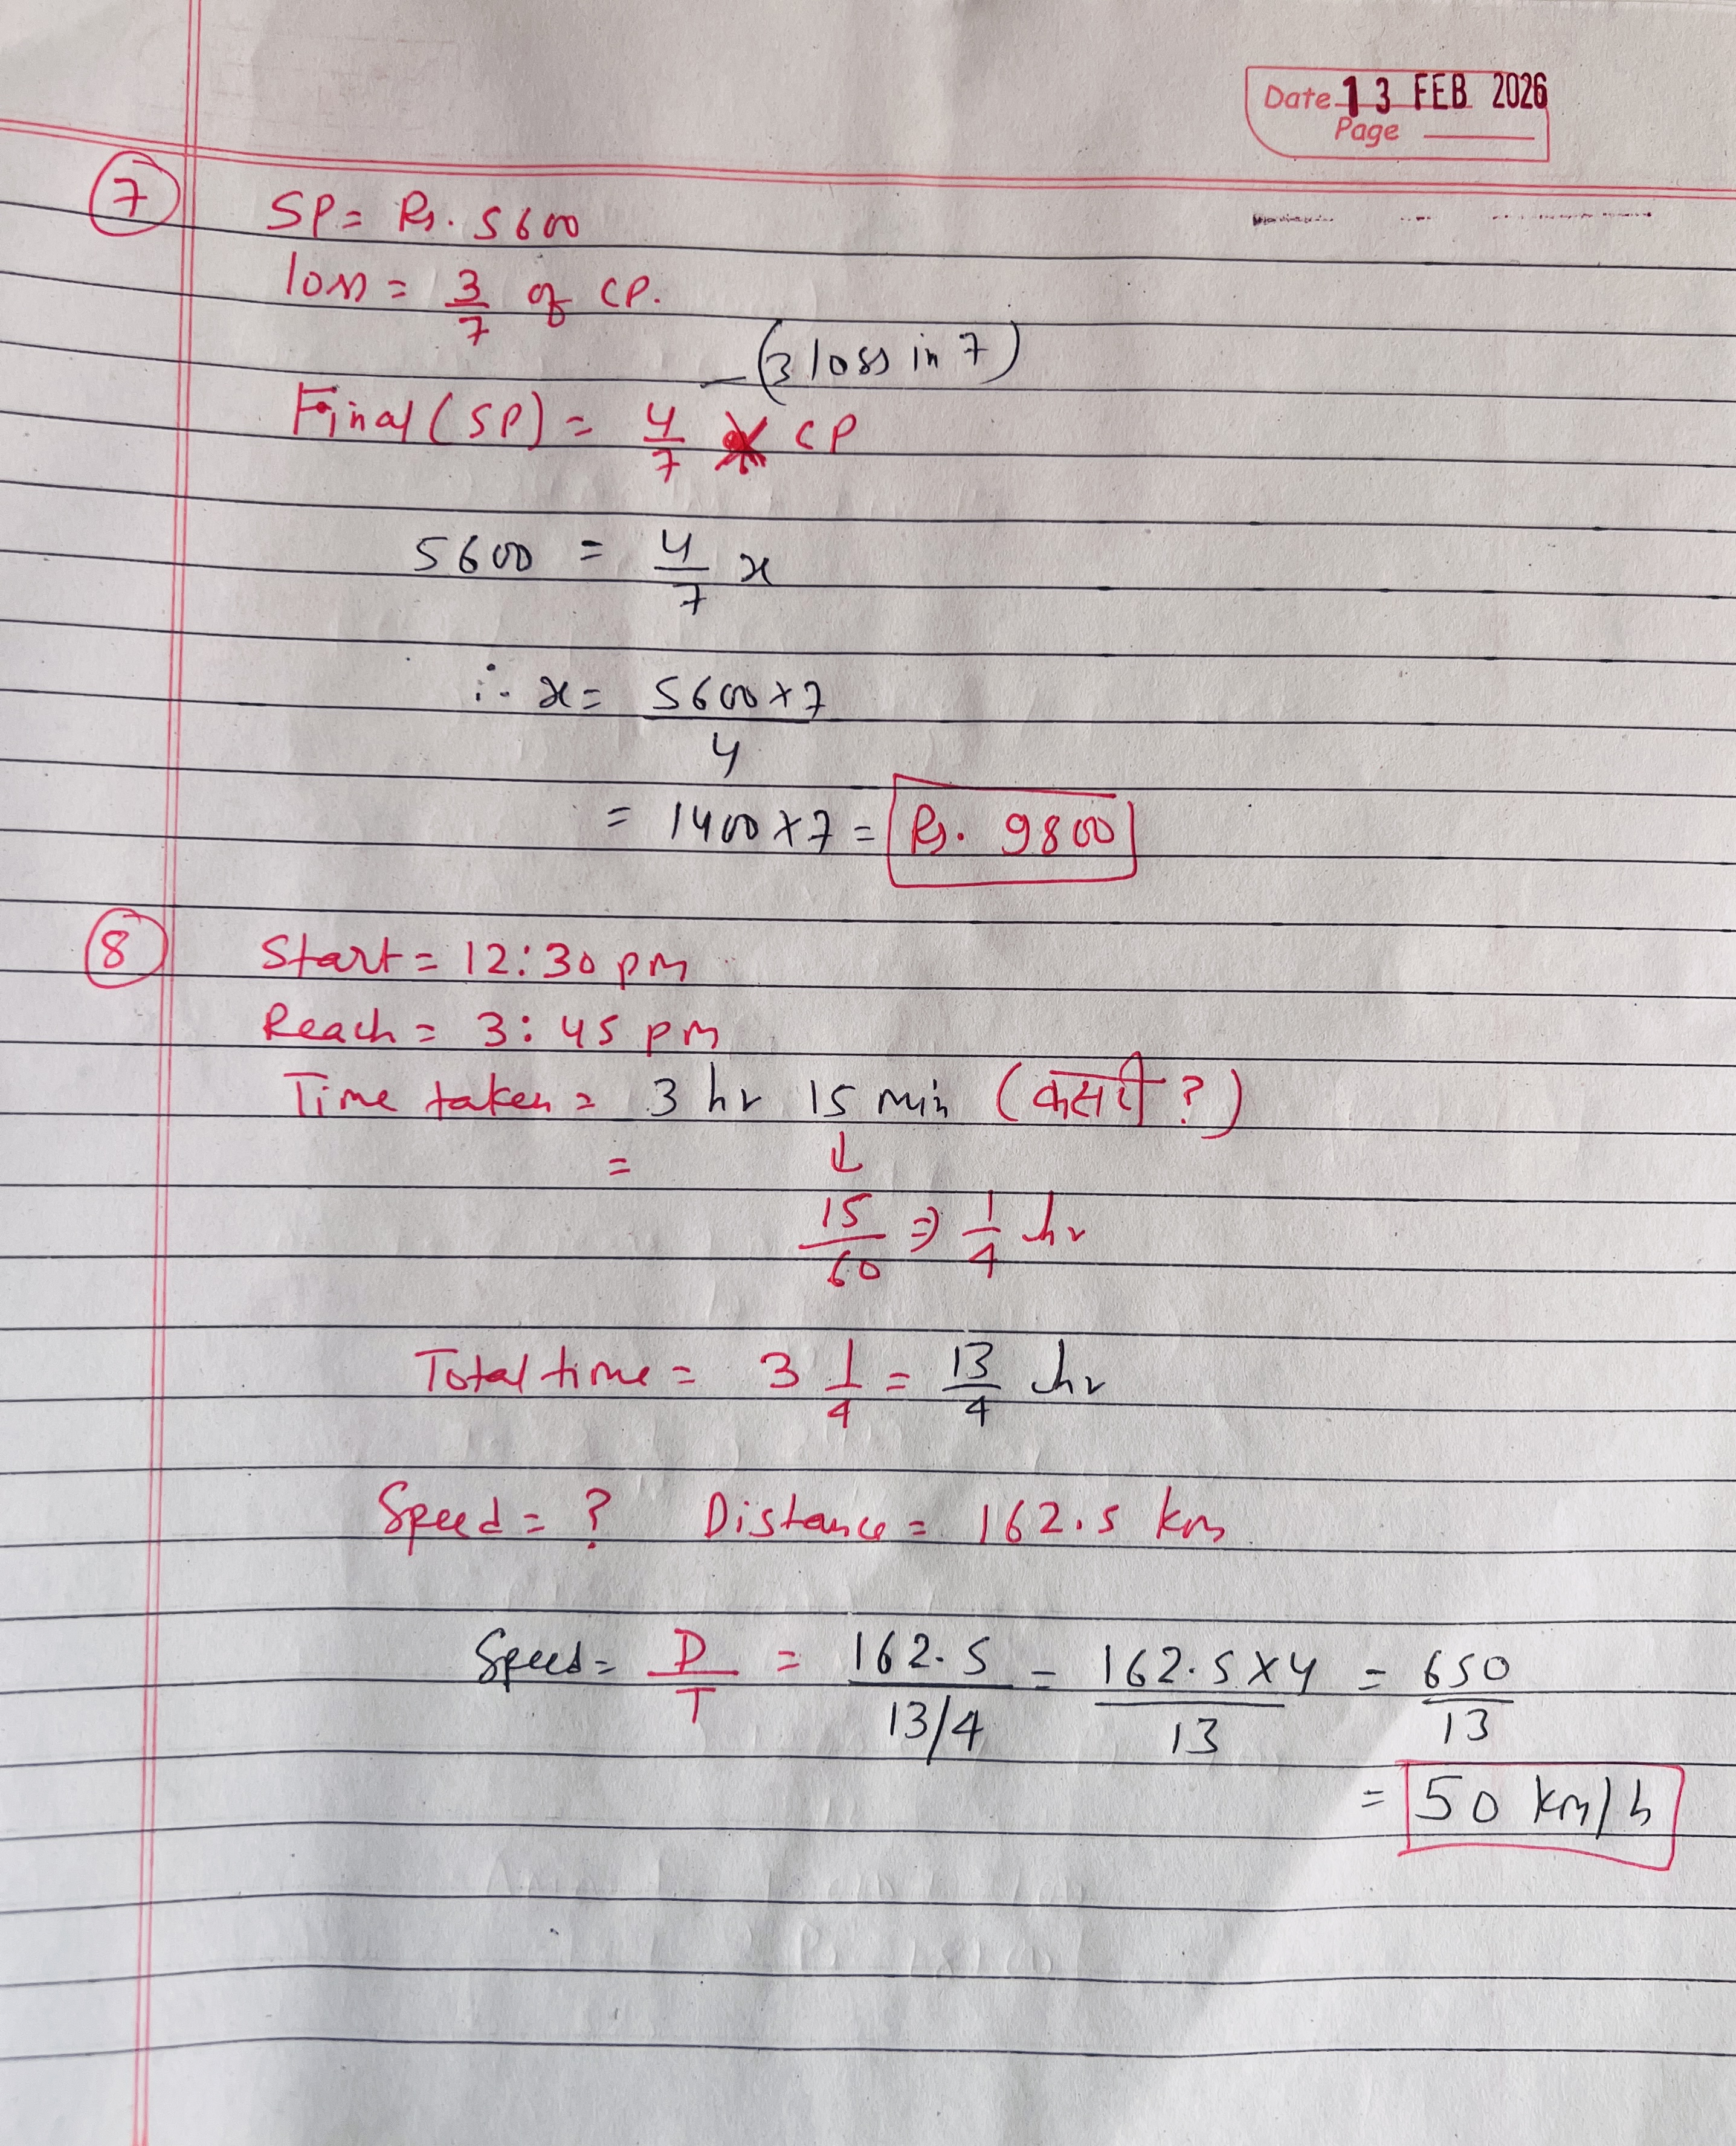 Date 13 FEB 2026
Page
7 SP = Rs. 5600
loss = 3/7 of CP.
(3 loss in 7)
Final (SP) = 4/7 CP
5600 = 4/7 x
∴ x = 5600 × 7 / 4
= 1400 × 7 = Rs. 9800
8 Start = 12:30 pm
Reach = 3:45 pm
Time taken = 3 hr 15 min (कसरी ?)
= ↓
15/60 ⇒ 1/4 hr
Total time = 3 1/4 = 13/4 hr
Speed = ? Distance = 162.5 km
Speed = D/T = 162.5 / 13/4 = 162.5 × 4 / 13 = 650/13
= 50 km/h